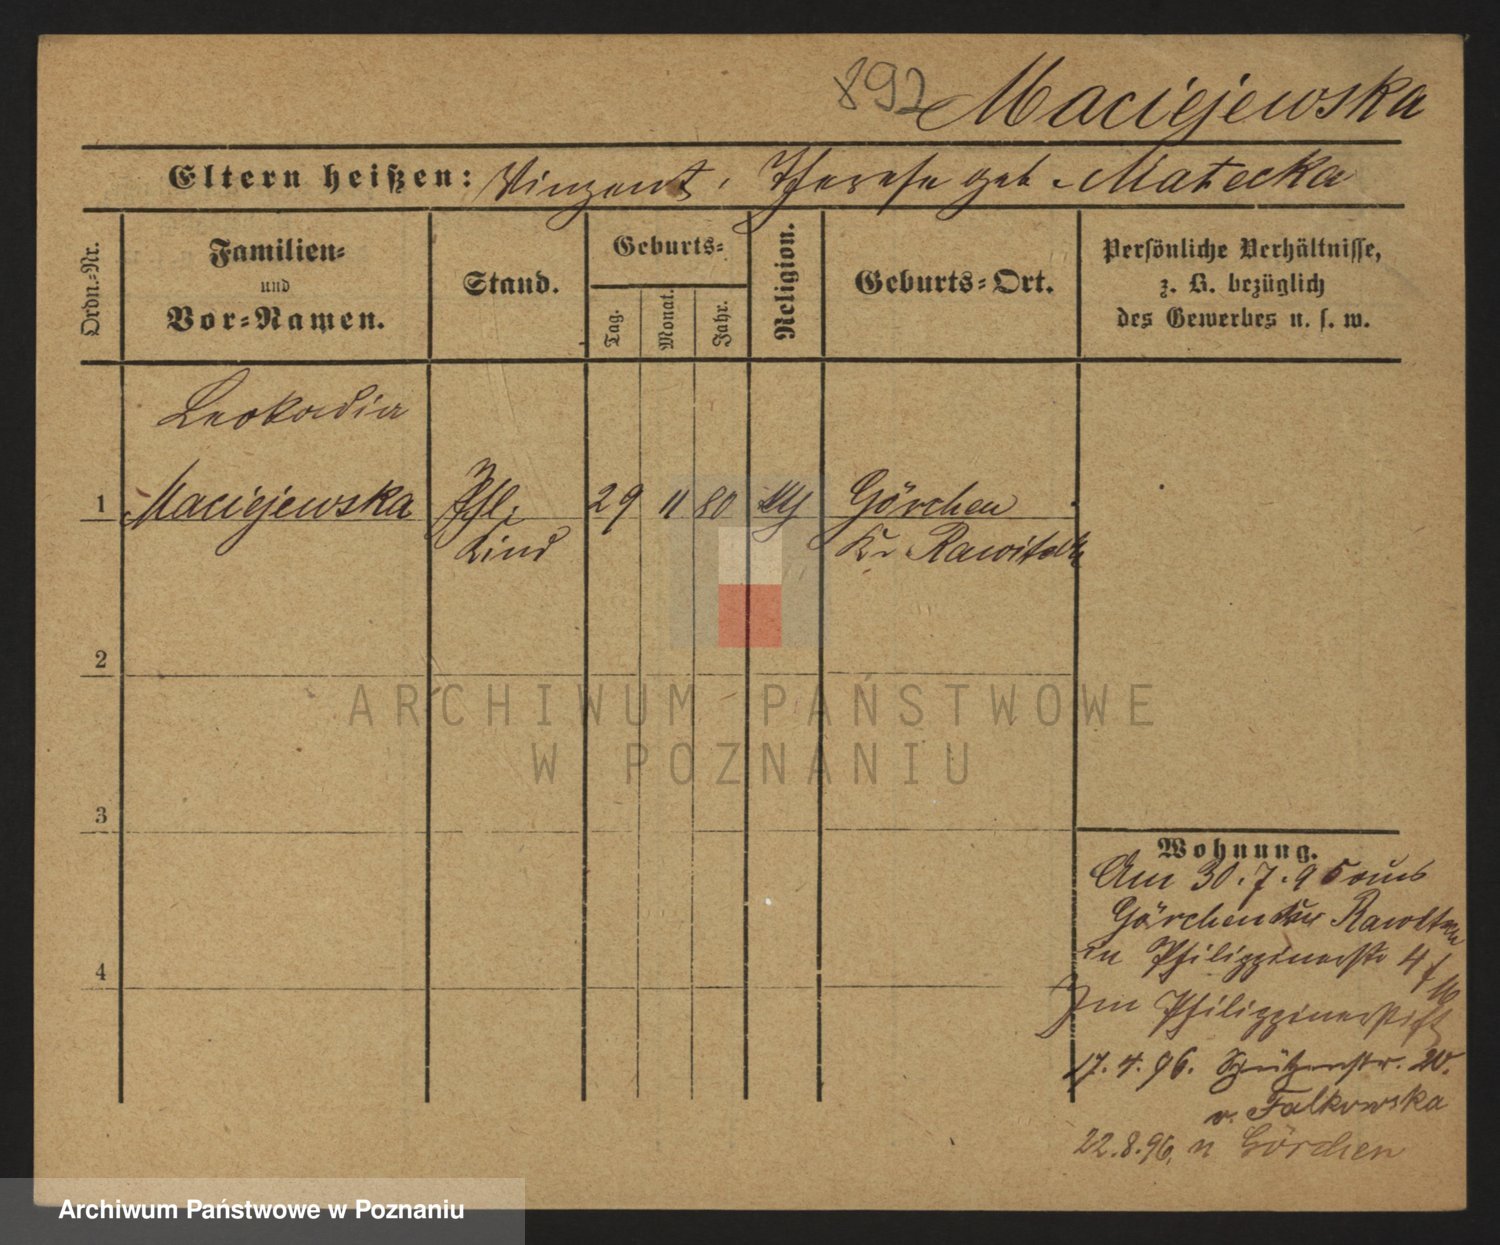 892 Maciejewska
Eltern heißen: Vinzent, Therese geb Matecka
Ordn.-Nr.
Familien-
und
Vor-Namen.
Stand.
Geburts-
Tag.
Monat.
Jahr.
Religion.
Geburts-Ort.
Persönliche Verhältnisse,
z. B. bezüglich
des Gewerbes u. s. w.
Leokadia
1 Maciejewska
29 11 80
Görchen
Kind
Kr. Rawitsch
2
3
4
Wohnung.
Am 30.7.95 aus
Görchen Kr Rawitsch
in Philippinerstr 4
Im Philippinerstift
17.4.96. Schützenstr. 20.
v. Falkowska
22.8.96. n Görchen
ARCHIWUM PAŃSTWOWE
W POZNANIU
Archiwum Państwowe w Poznaniu